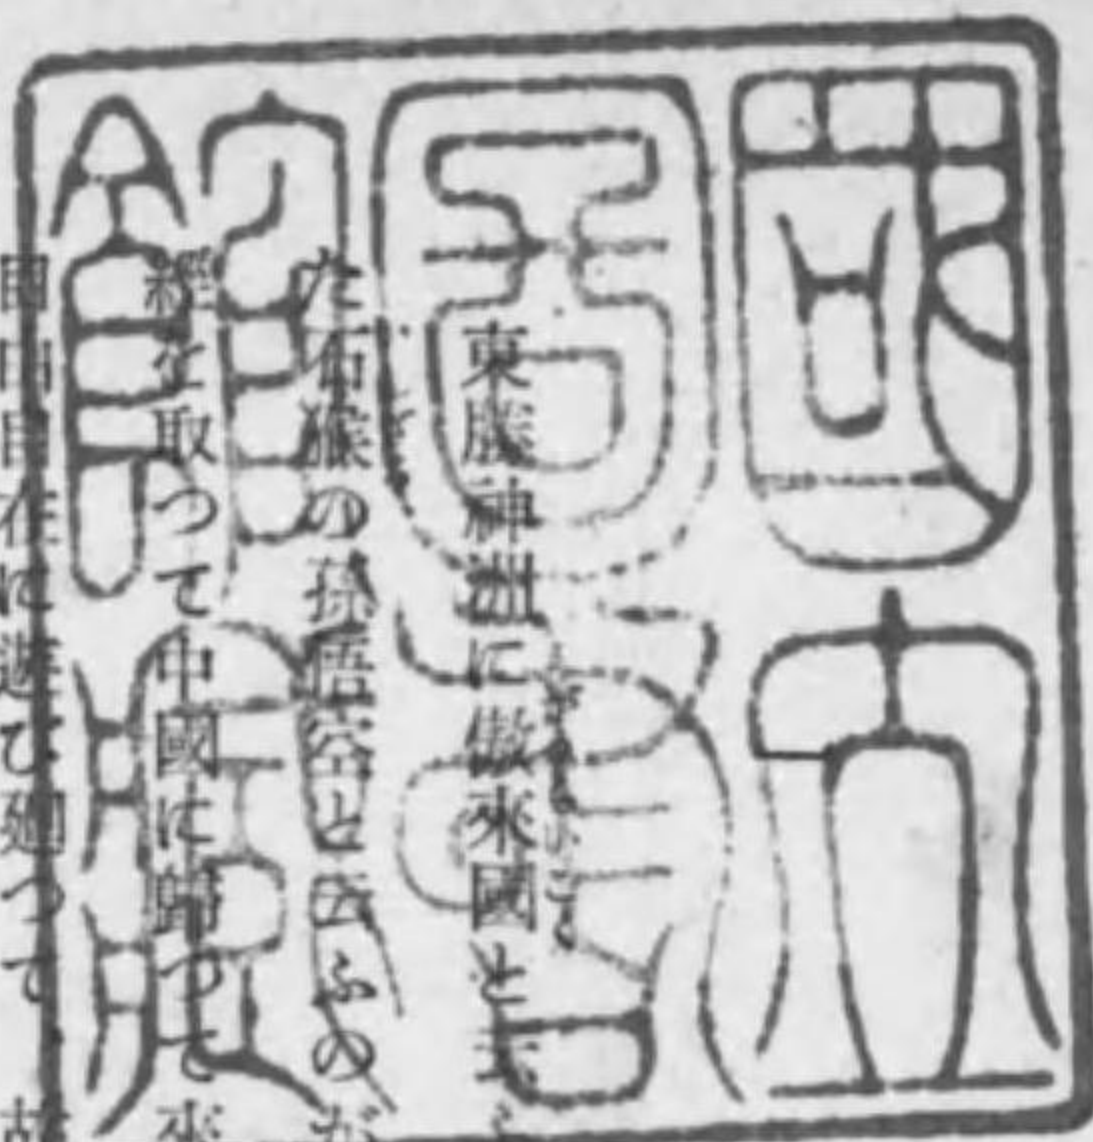 國立
圖書
館
東勝神洲に傲來國と云
た石猴の孫悟空と云ふのだ
經を取つて中國に歸つて來
自由自在に遊び廻つて